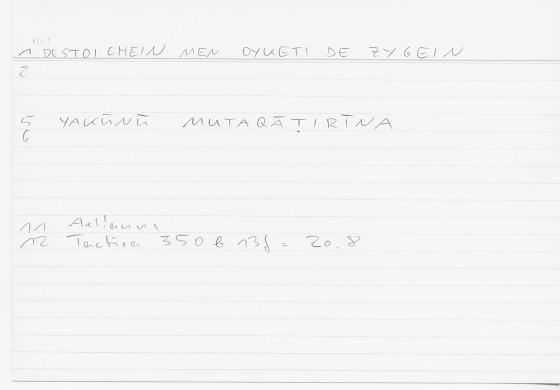 1 DESTOICHEIN MEN OYKETI DE ZYGEIN
2
5 YAKŪNŪ MUTAQĀṬIRĪNA
6
11 Aelianus
12 Tactica 350 b 13f = 20.8